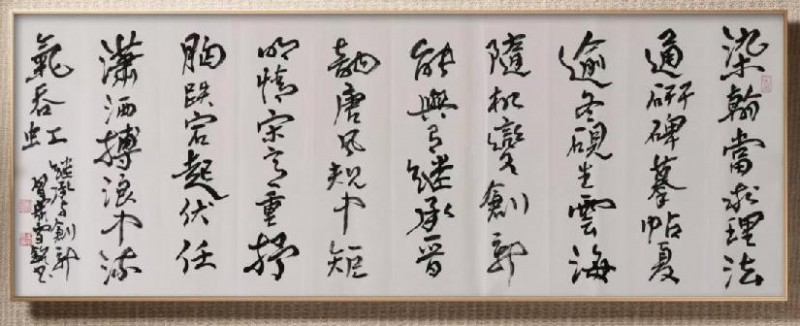 染翰當求理法
通研碑摹帖夏
逾冬硯生雲海
隨机變創新
能與繼承晉
韻唐風規中矩
明情宋意重抒
胸跌宕起伏任
瀟洒搏浪中流
氣吞虹
繼承与創新